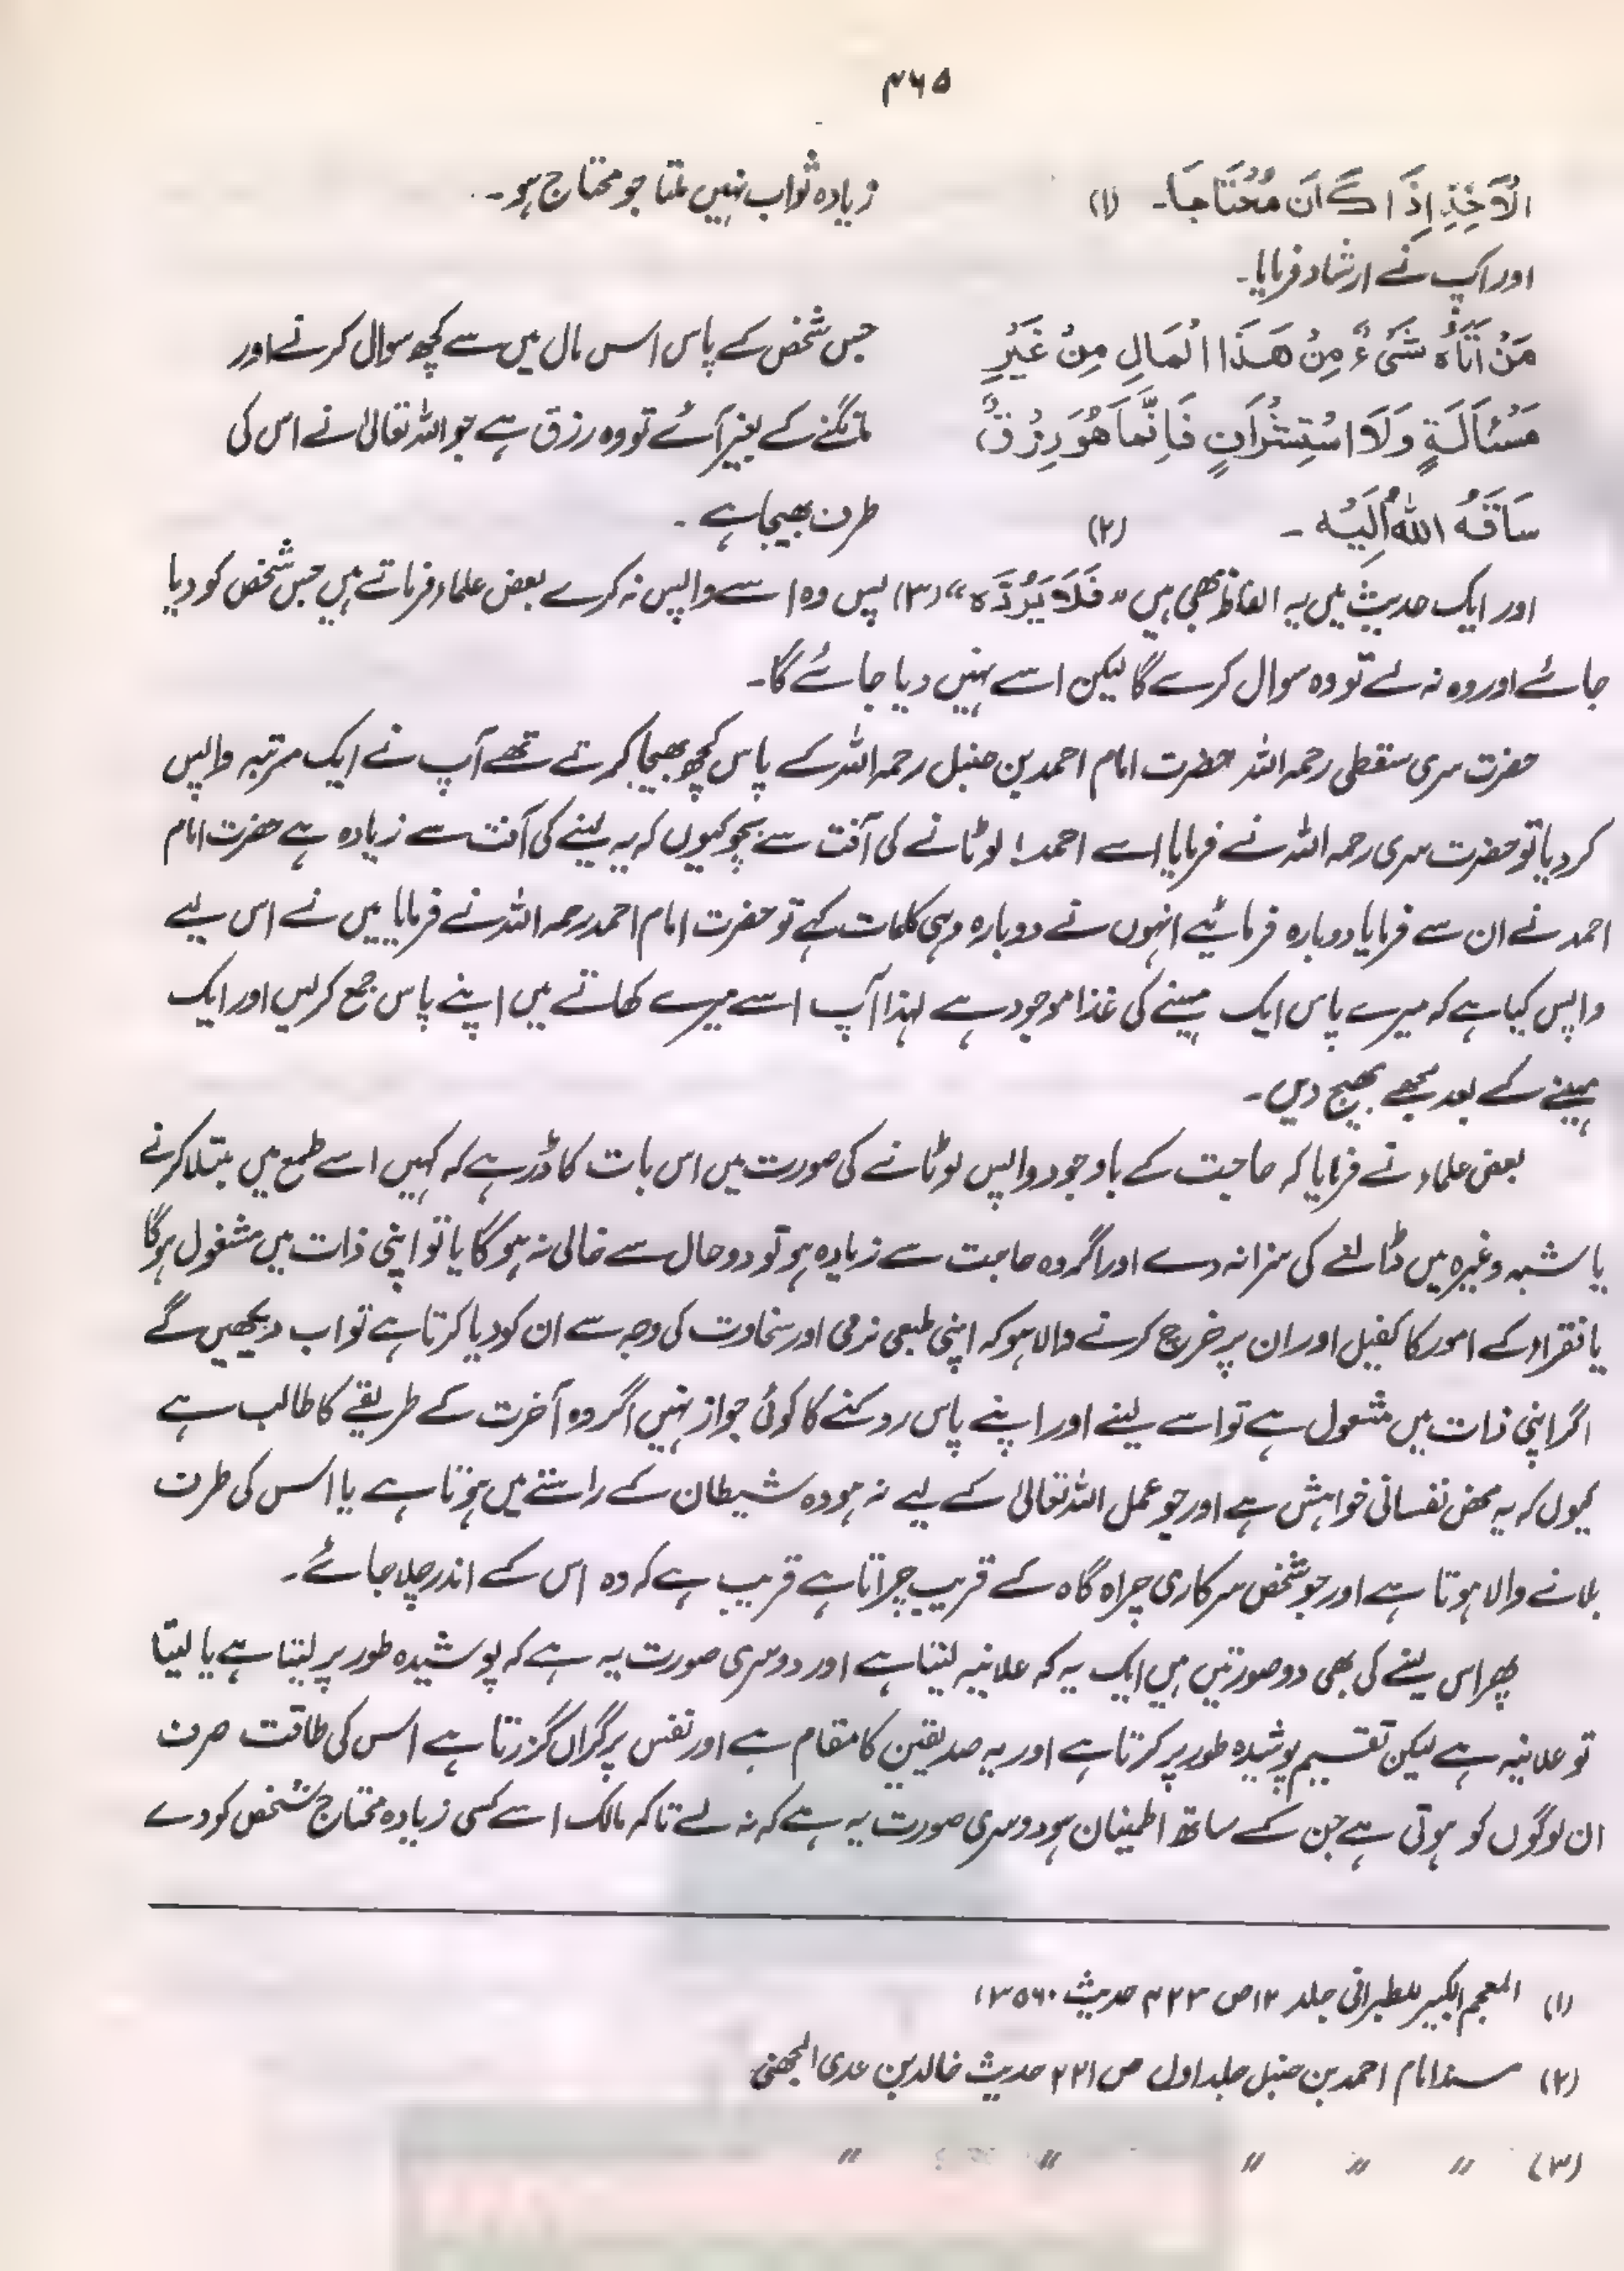 ۴۶۵
الْاٰخِذِ اِذَا كَانَ مُحْتَاجًا۔ (۱) زیادہ ثواب نہیں ملتا جو محتاج ہو۔
اور آپ نے ارشاد فرمایا۔
مَنْ اَتَاهُ شَیْءٌ مِنْ هَذَا الْمَالِ مِنْ غَیْرِ جس شخص کے پاس اس مال میں سے کچھ سوال کرنے اور
مَسْئَالَةٍ وَلَا اسْتِشْرَافٍ فَاِنَّمَا هُوَ رِزْقٌ مانگنے کے بغیر آئے تو وہ رزق ہے جو اللہ تعالیٰ نے اس کی
سَاقَهُ اللّٰهُ اِلَیْهِ ۔ (۲) طرف بھیجا ہے ۔
اور ایک حدیث میں یہ الفاظ بھی ہیں «فَلَا یَرُدَّہ» (۳) پس وہ اسے واپس نہ کرے بعض علماء فرماتے ہیں جس شخص کو دیا
جائے اور وہ نہ لے تو وہ سوال کرے گا لیکن اسے نہیں دیا جائے گا۔
حضرت سری سقطی رحمہ اللہ حضرت امام احمد بن حنبل رحمہ اللہ کے پاس کچھ بھیجا کرتے تھے آپ نے ایک مرتبہ واپس
کر دیا تو حضرت سری رحمہ اللہ نے فرمایا اے احمد! لوٹانے کی آفت سے بچو کیوں کہ یہ لینے کی آفت سے زیادہ ہے حضرت امام
احمد نے ان سے فرمایا دوبارہ فرمائیے انہوں نے دوبارہ وہی کلمات کہے تو حضرت امام احمد رحمہ اللہ نے فرمایا میں نے اس لیے
واپس کیا ہے کہ میرے پاس ایک مہینے کی غذا موجود ہے لہذا آپ اسے میرے کھاتے میں اپنے پاس جمع کر لیں اور ایک
مہینے کے بعد مجھے بھیج دیں۔
بعض علماء نے فرمایا کہ حاجت کے باوجود واپس لوٹانے کی صورت میں اس بات کا ڈر ہے کہ کہیں اسے طمع میں مبتلا کرنے
یا شبہ وغیرہ میں ڈالنے کی سزا نہ دے اور اگر وہ حاجت سے زیادہ ہو تو دو حال سے خالی نہ ہو گا یا تو اپنی ذات میں مشغول ہو گا
یا فقراء کے امور کا کفیل اور ان پر خرچ کرنے والا ہو کہ اپنی طبعی نرمی اور سخاوت کی وجہ سے ان کو دیا کرتا ہے تو اب دیکھیں گے
اگر اپنی ذات میں مشغول ہے تو اسے لینے اور اپنے پاس روکنے کا کوئی جواز نہیں اگر وہ آخرت کے طریقے کا طالب ہے
کیوں کہ یہ محض نفسانی خواہش ہے اور جو عمل اللہ تعالیٰ کے لیے نہ ہو وہ شیطان کے راستے میں ہوتا ہے یا اس کی طرف
بلانے والا ہوتا ہے اور جو شخص سرکاری چراہ گاہ کے قریب چراتا ہے قریب ہے کہ وہ اس کے اندر چلا جائے۔
پھر اس لینے کی بھی دو صورتیں ہیں ایک یہ کہ علانیہ لیتا ہے اور دوسری صورت یہ ہے کہ پوشیدہ طور پر لیتا ہے یا لیتا
تو علانیہ ہے لیکن تقسیم پوشیدہ طور پر کرتا ہے اور یہ صدیقین کا مقام ہے اور نفس پر گراں گزرتا ہے اس کی طاقت صرف
ان لوگوں کو ہوتی ہے جن کے ساتھ اطمینان ہو دوسری صورت یہ ہے کہ نہ لے تاکہ مالک اسے کسی زیادہ محتاج شخص کو دے
(۱) المعجم الکبیر للطبرانی جلد ۱۲ ص ۴۲۳ حدیث ۱۳۵۶۰
(۲) مسند امام احمد بن حنبل جلد اول ص ۲۲۱ حدیث خالد بن عدی الجھنی
(۳) 〃 〃 〃 〃 〃